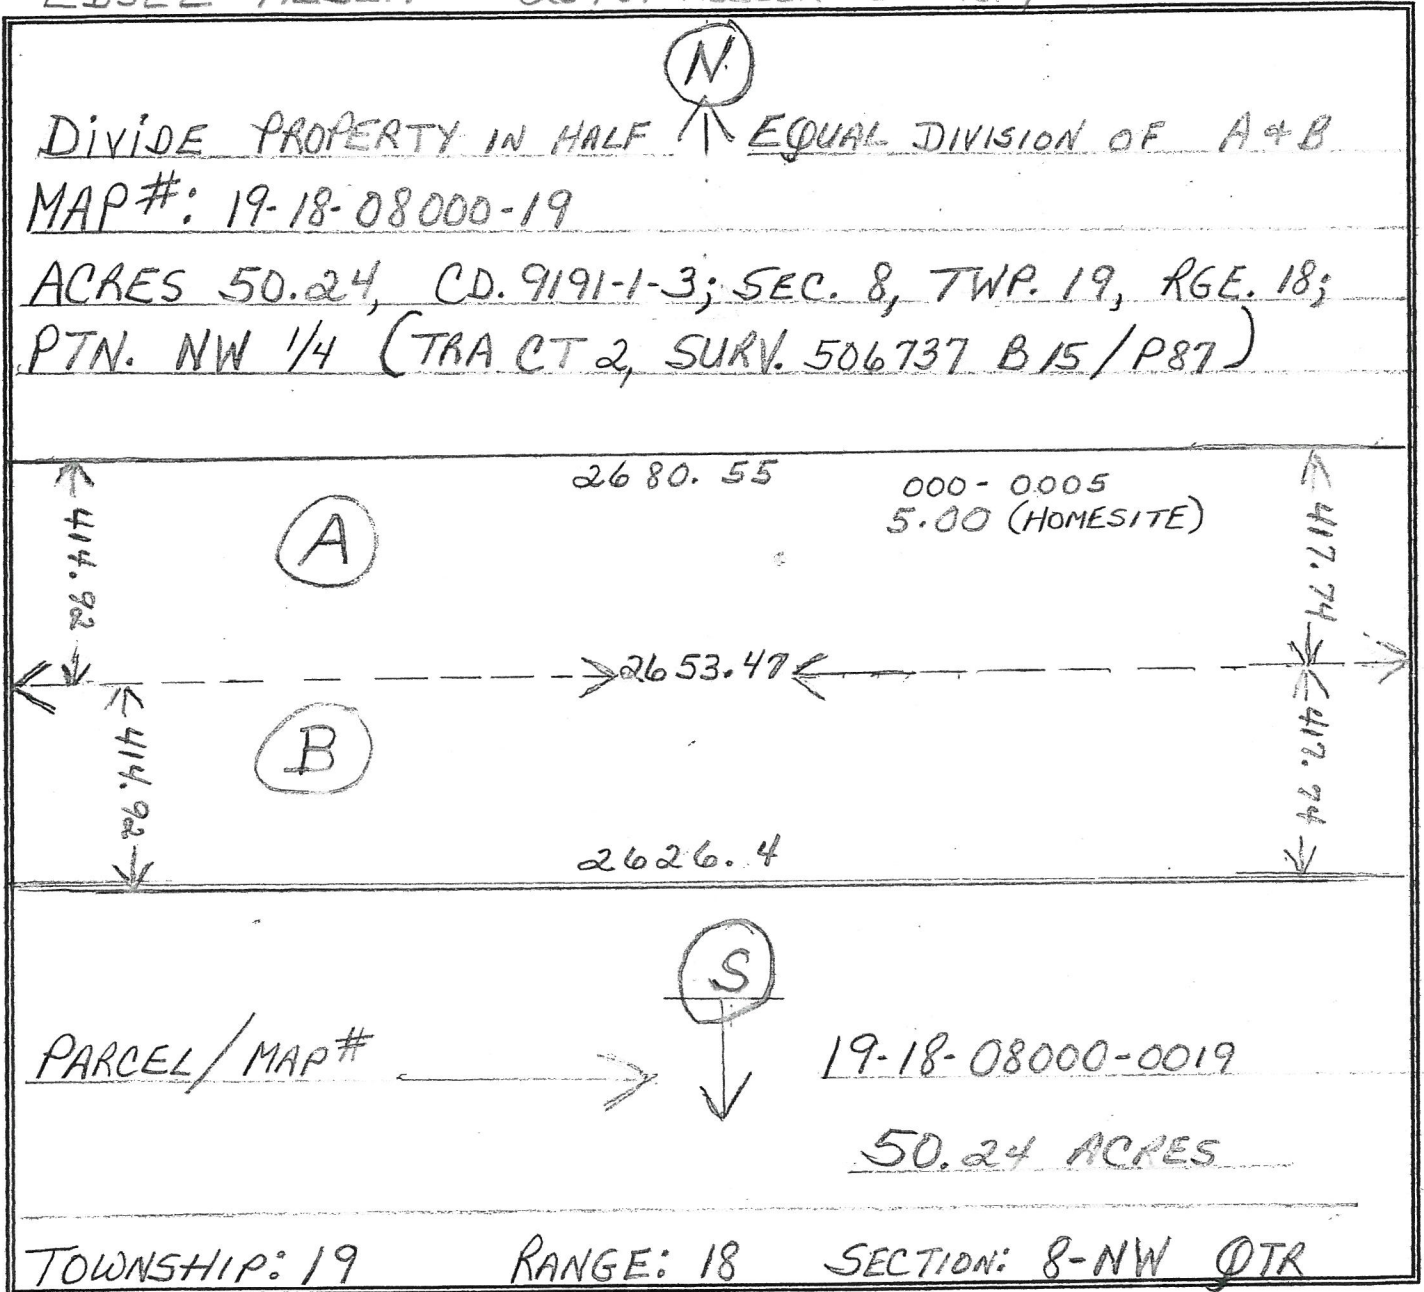 N
DIVIDE PROPERTY IN HALF EQUAL DIVISION OF A & B
MAP#: 19-18-08000-19
ACRES 50.24, CD. 9191-1-3; SEC. 8, TWP. 19, RGE. 18;
PTN. NW 1/4 (TRACT 2, SURV. 506737 B15/P87)
2680.55
000-0005
5.00 (HOMESITE)
A
414.92
417.74
2653.47
B
414.92
417.74
2626.4
S
PARCEL/MAP#
19-18-08000-0019
50.24 ACRES
TOWNSHIP: 19 RANGE: 18 SECTION: 8-NW QTR